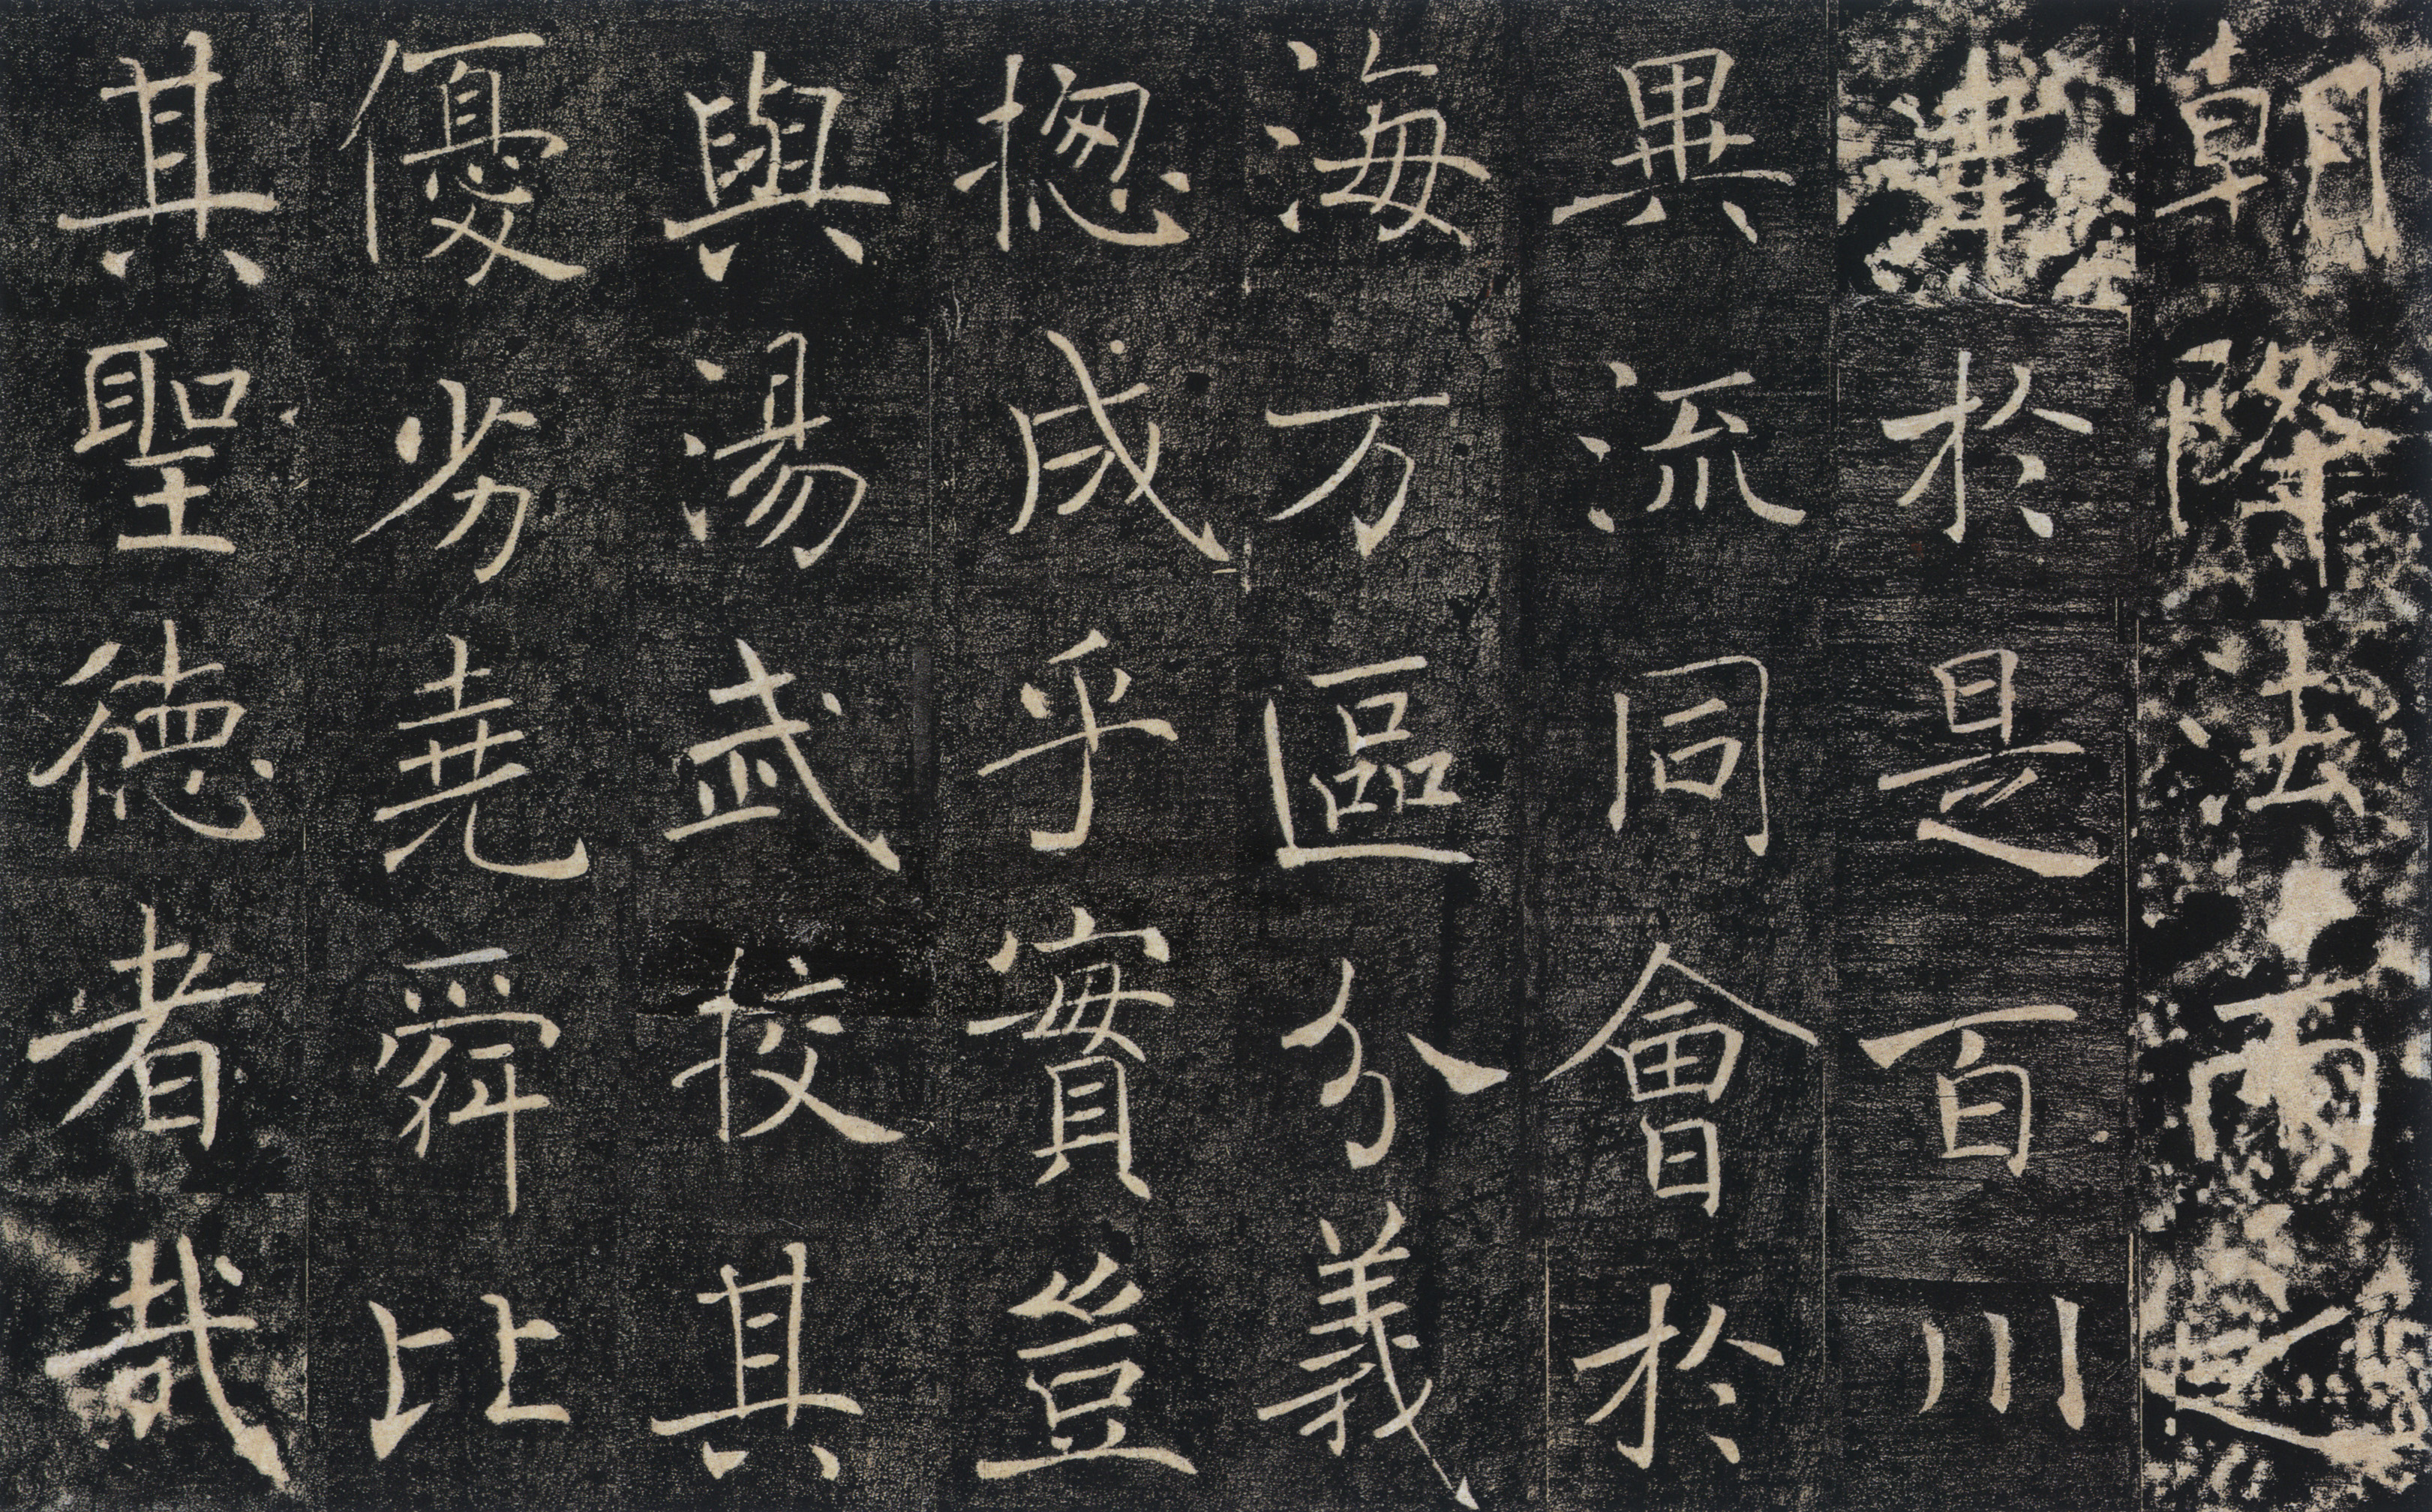 朝降法雨
於是百川
異流同會於
海万區分義
揔成乎實豈
與湯武校其
優劣堯舜比
其聖德者哉